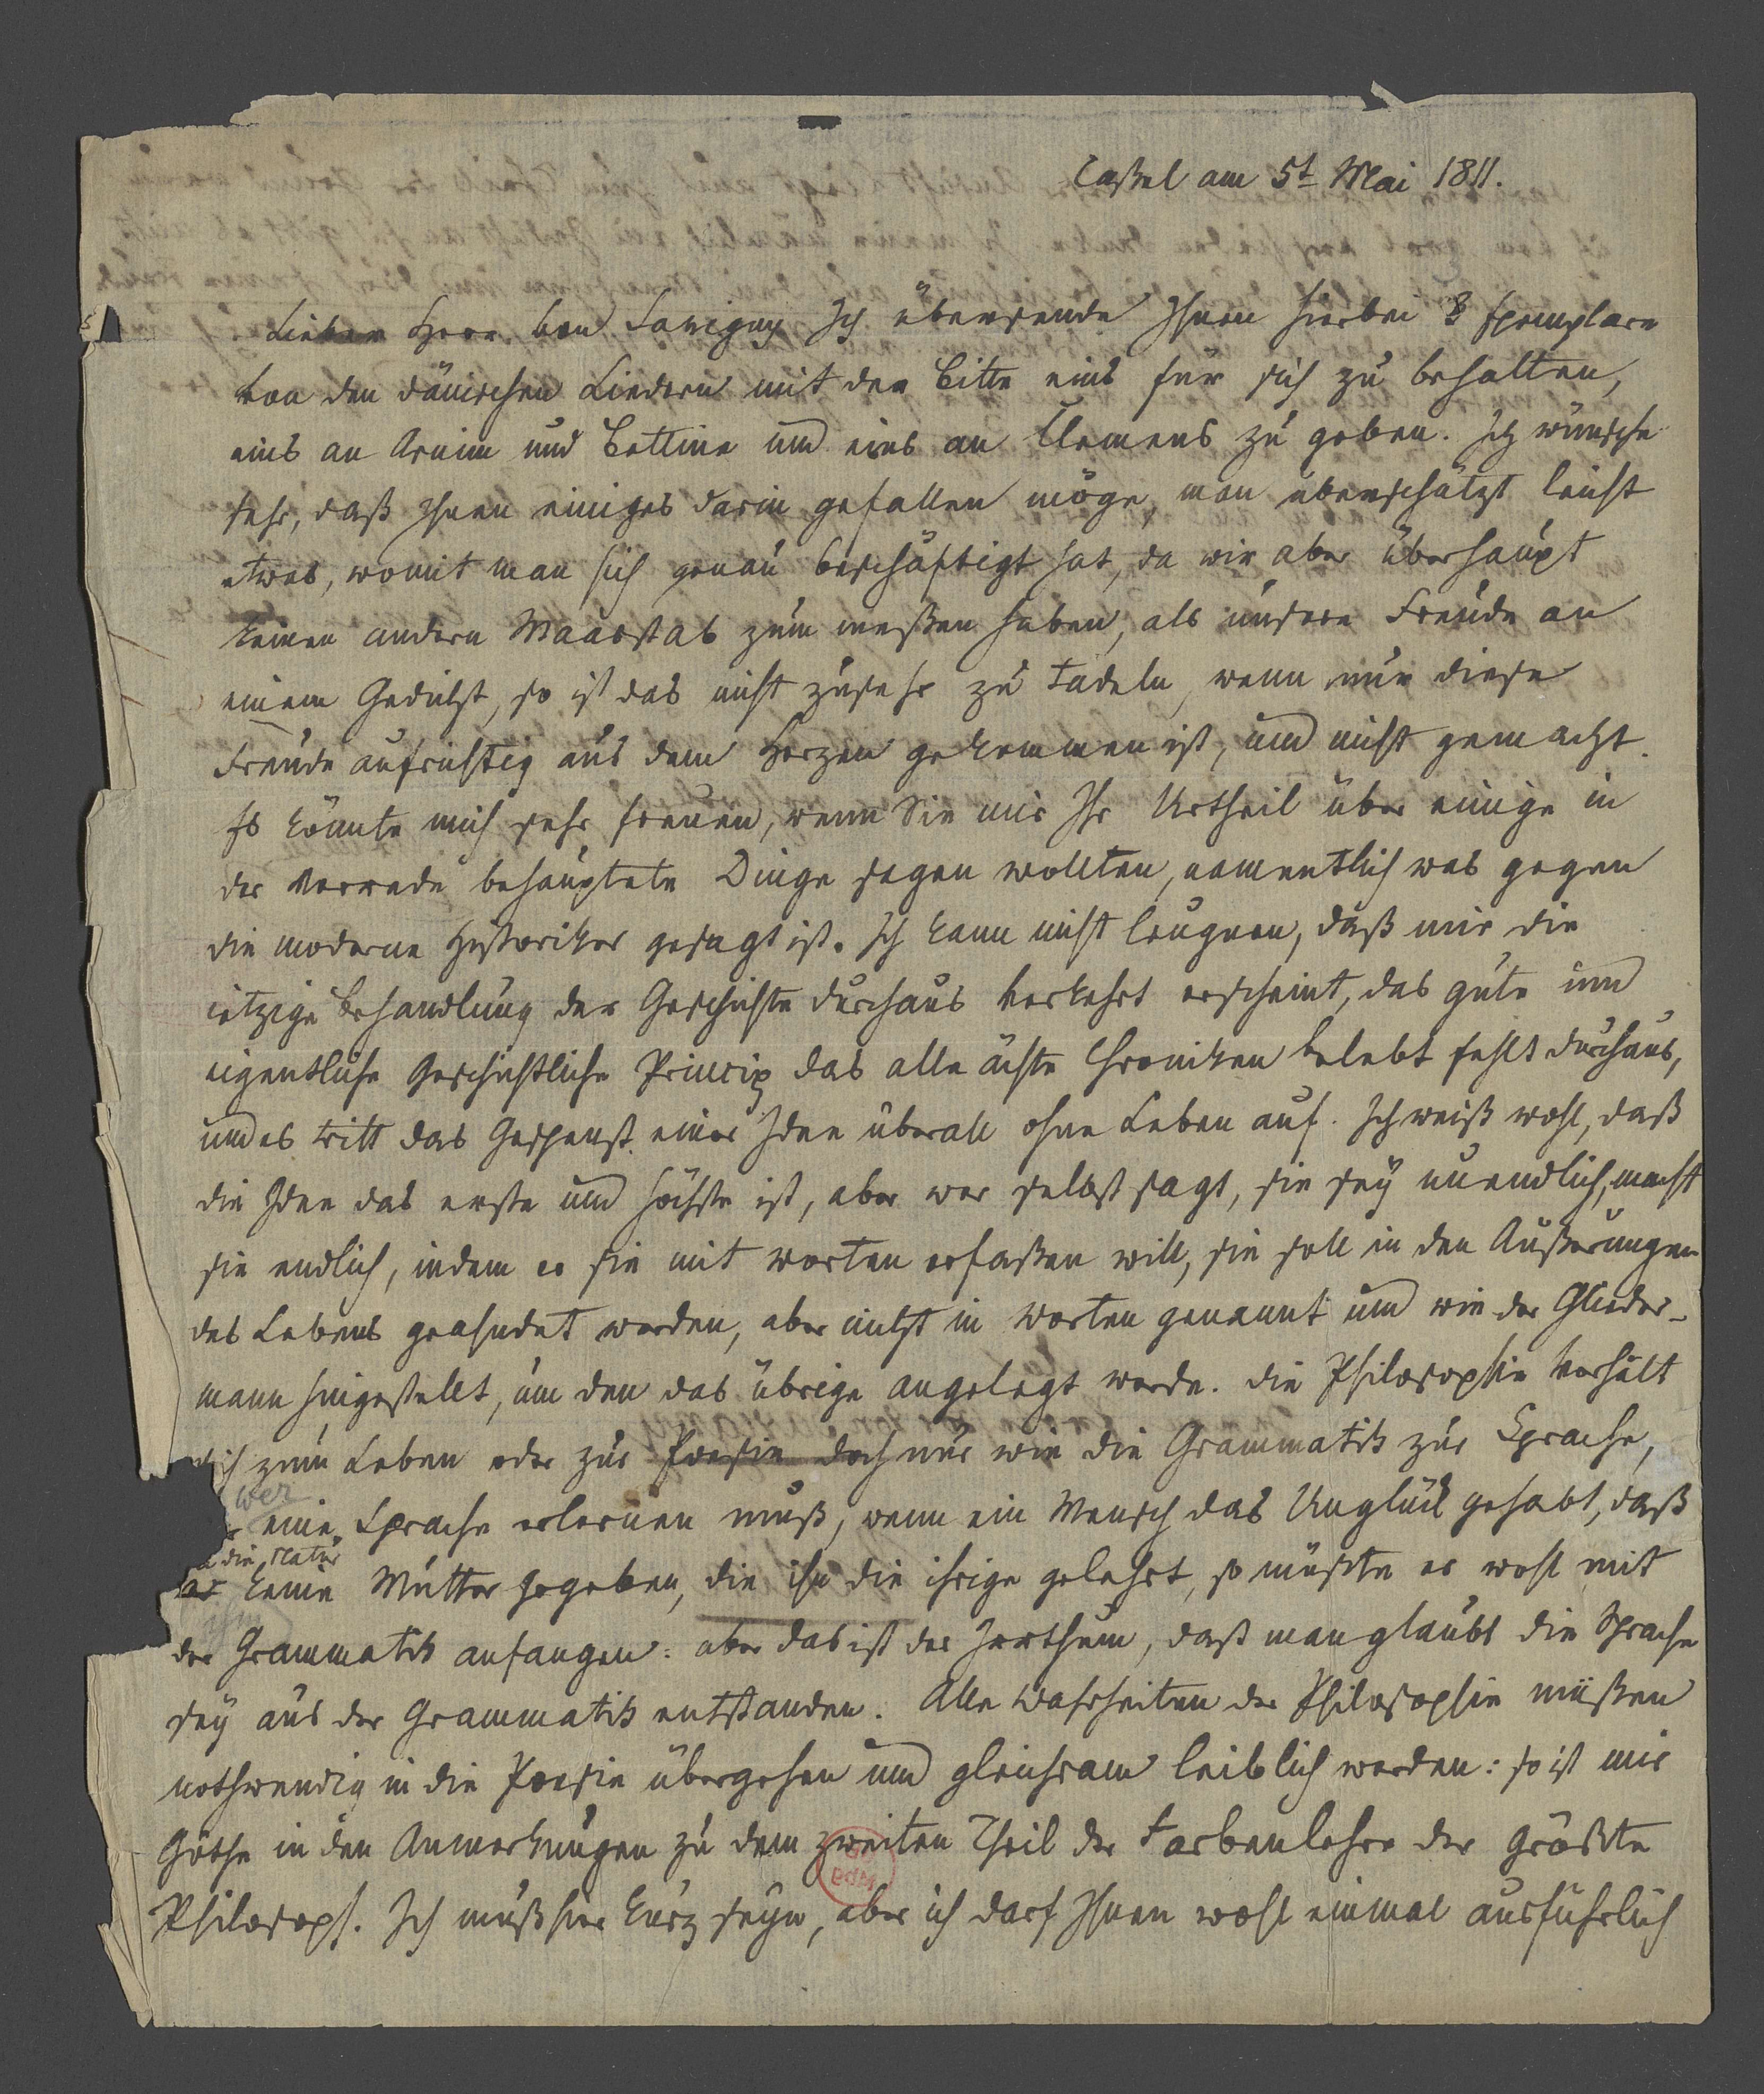 Caßel am 5t Mai 1811.
Lieber Herr von Savigny Ich übersende Ihnen hierbei 3 Exemplare
von den dänischen Liedern mit der Bitte eins für sich zu behalten,
eins an Arnim und Bettine und eins an Clemens zu geben. Ich wünsche
sehr, daß Ihnen einiges darin gefallen möge, man überschätzt leicht
etwas, womit man sich genau beschäftigt hat, da wir aber überhaupt
keinen andern Maasstab zum meßen haben, als unsere Freude an
einem Gedicht, so ist das nicht zusehr zu tadeln, wenn nur diese
Freude aufrichtig aus dem Herzen gekommen ist, und nicht gemacht.
Es könnte mich sehr freuen, wenn Sie mir Ihr Urtheil über einige in
der Vorrede behauptete Dinge sagen wollten, namentlich was gegen
die moderne Historiker gesagt ist. Ich kann nicht leugnen, daß mir die
ietzige Behandlung der Geschichte durchaus verkehrt erscheint, das gute und
eigentliche Geschichtliche Princip das alle ächte Chroniken belebt fehlt durchaus,
und es tritt das Gespenst einer Idee überall ohne Leben auf. Ich weiß wohl, daß
die Idee das erste und höchste ist, aber wer selbst sagt, sie sey unendlich, macht
sie endlich, indem er sie mit worten erfaßen will, sie soll in den Äußerungen
des Lebens geahndet werden, aber nicht in worten genannt und wie der Glieder-
mann hingestellt, um den das übrige angelegt werde. die Philosophie verhält
sich zum Leben oder zur Poesie doch nur wie die Grammatik zur Sprache,
wer
eine Sprache erlernen muß, wenn ein Mensch das Unglück gehabt, daß
die Natur
keine Mutter gegeben, die ihn die ihrige gelehrt, so müßte er wohl mit
ihm
der Grammatik anfangen: aber das ist der Irrthum, daß man glaubt die Sprache
sey aus der Grammatik entstanden. Alle Wahrheiten der Philosophie müßen
nothwendig in die Poesie übergehen und gleichsam leiblich werden: so ist mir
Göthe in den Anmerkungen zu dem zweiten Theil der Farbenlehre der größte
Philosoph. Ich muß hier kurz seyn, aber ich darf Ihnen wohl einmal ausführlich